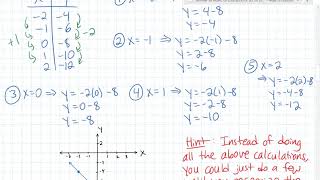 x y
-2 -4
-1 -6
0 -8
1 -10
2 -12
+1
-2
y=4-8
y=-4
② x=-1 ⇒ y=-2(-1)-8
y=2-8
y=-6
③ x=0 ⇒ y=-2(0)-8
y=0-8
y=-8
④ x=1 ⇒ y=-2(1)-8
y=-2-8
y=-10
⑤ x=2
⇒ y=-2(2)-8
y=-4-8
y=-12
x
Hint: Instead of doing
all the above calculations,
you could just do a few